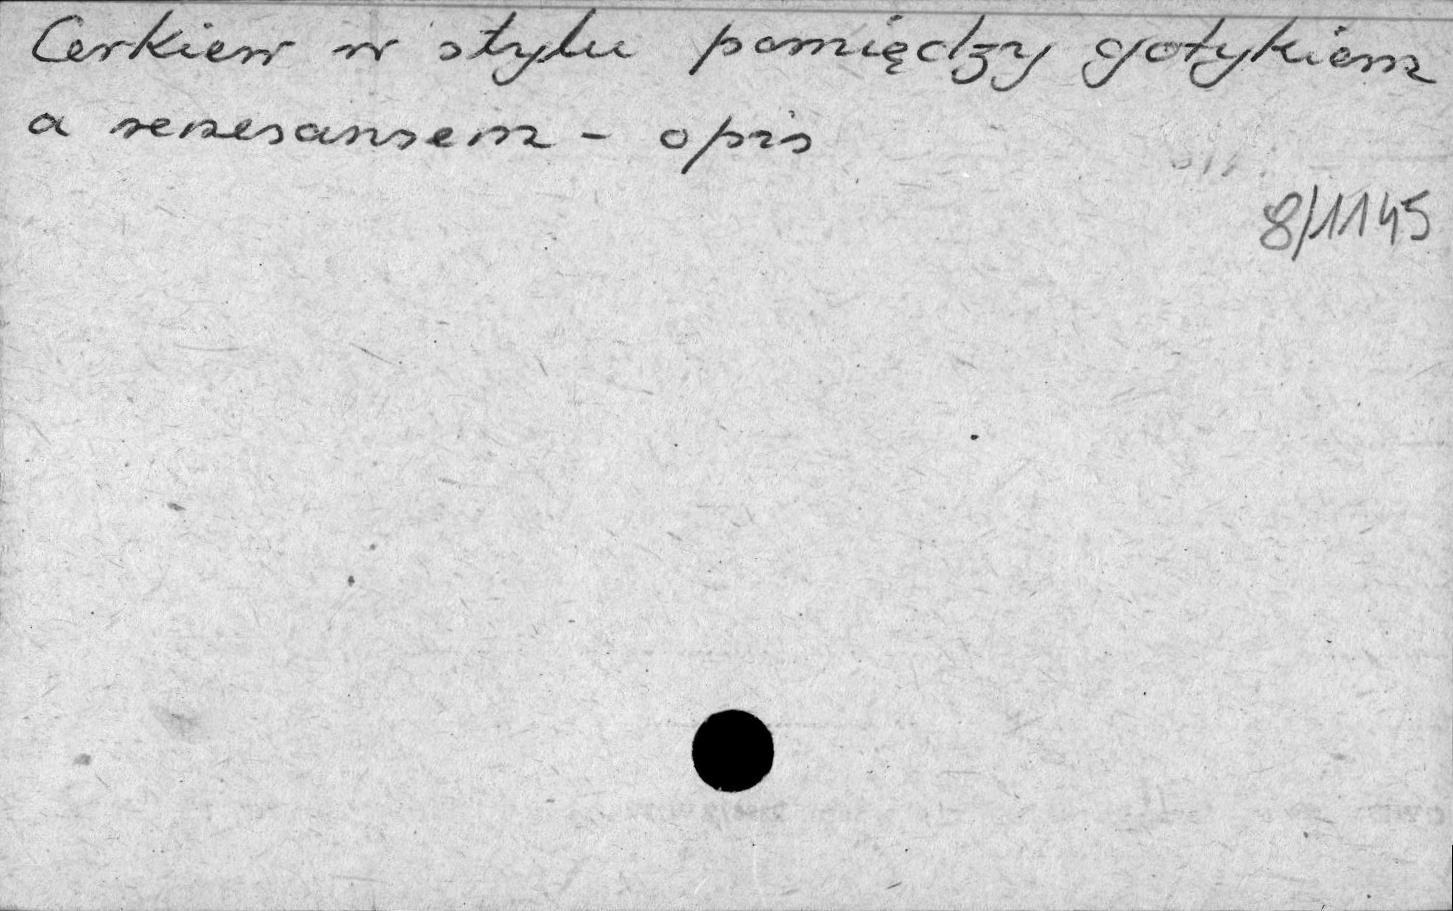 Cerkiew w stylu pomiędzy gotykiem
a renesansem - opis
8/1145